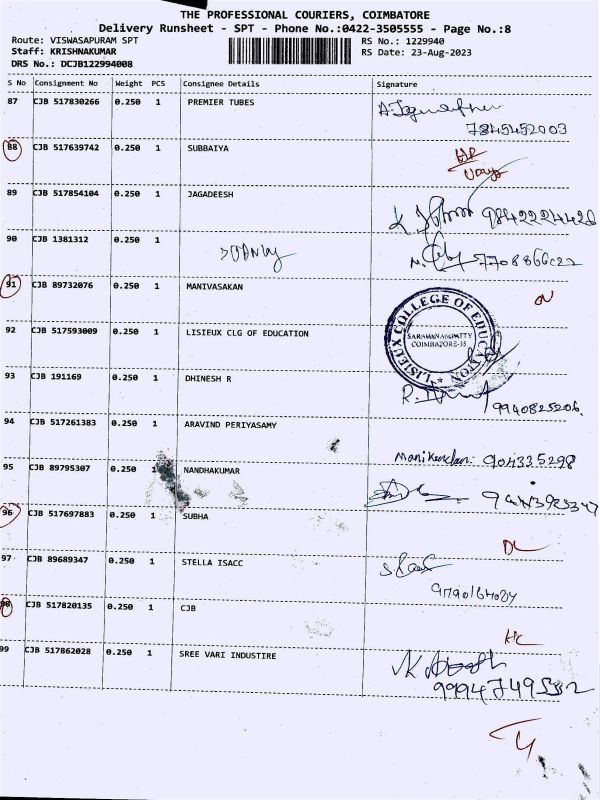 THE PROFESSIONAL COURIERS, COIMBATORE
Delivery Runsheet - SPT - Phone No.:0422-3505555 - Page No.:8
Route: VISWASAPURAM SPT RS No.: 1229940
Staff: KRISHNAKUMAR RS Date: 23-Aug-2023
DRS No.: DCJB122994008
S No Consignment No Weight PCS Consignee Details Signature
87 CJB 517830266 0.250 1 PREMIER TUBES
7845452003
88 CJB 517639742 0.250 1 SUBBAIYA
89 CJB 517854104 0.250 1 JAGADEESH
9842224426
90 CJB 1381312 0.250 1
91 CJB 89732076 0.250 1 MANIVASAKAN
92 CJB 517593009 0.250 1 LISIEUX CLG OF EDUCATION
LISIEUX COLLEGE OF EDUCATION
SARAVANAMPATTY
COIMBATORE-35
93 CJB 191169 0.250 1 DHINESH R
9940825206.
94 CJB 517261383 0.250 1 ARAVIND PERIYASAMY
Manikandan: 904335298
95 CJB 89795307 0.250 1 NANDHAKUMAR
96 CJB 517697883 0.250 1 SUBHA
DL
97 CJB 89689347 0.250 1 STELLA ISACC
98 CJB 517820135 0.250 1 CJB
HC
99 CJB 517862028 0.250 1 SREE VARI INDUSTIRE